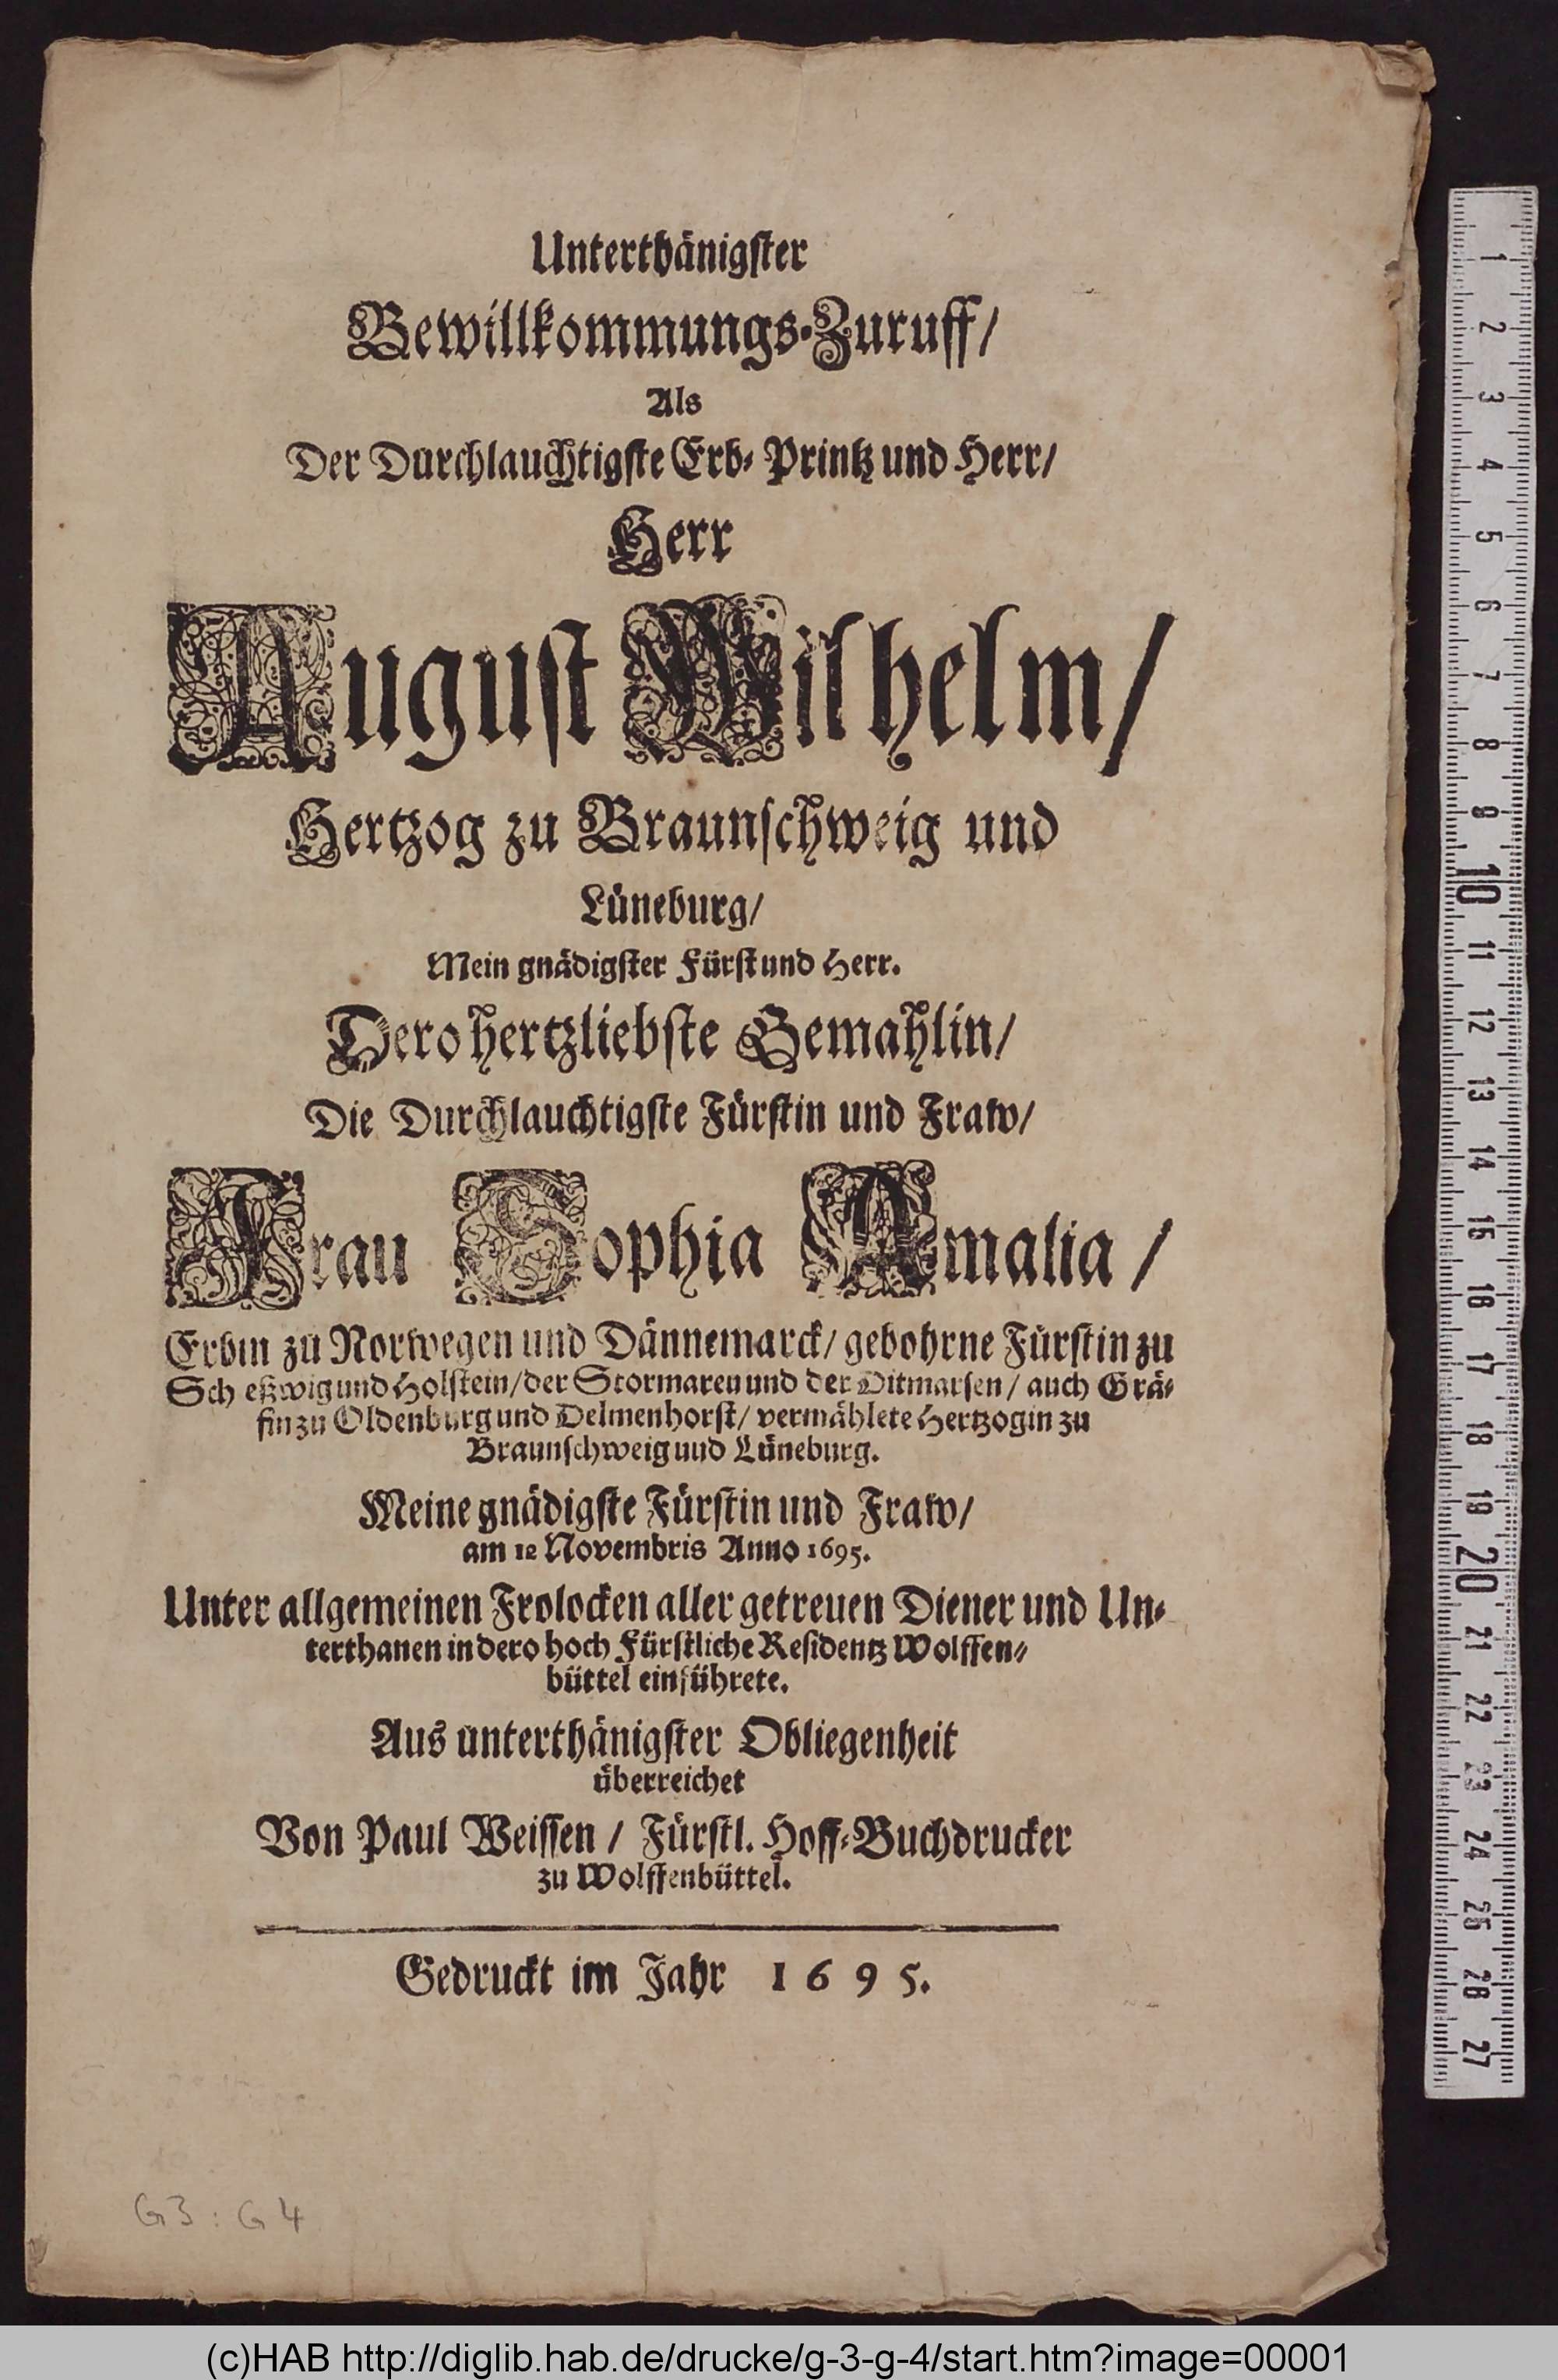 Unterthänigster
Bewillkommungs-Zuruff/
Als
Der Durchlauchtigste Erb-Printz und Herr/
Herr
August Wilhelm/
Hertzog zu Braunschweig und
Lüneburg/
Mein gnädigster Fürst und Herr.
Dero hertzliebste Gemahlin/
Die Durchlauchtigste Fürstin und Fraw/
Frau Sophia Amalia/
Erbin zu Norwegen und Dännemarck/ gebohrne Fürstin zu
Schleßwig und Holstein/ der Stormaren und der Ditmarsen/ auch Grä-
fin zu Oldenburg und Delmenhorst/ vermählete Hertzogin zu
Braunschweig und Lüneburg.
Meine gnädigste Fürstin und Fraw/
am 12 Novembris Anno 1695.
Unter allgemeinen Frolocken aller getreuen Diener und Un-
terthanen in dero hoch Fürstliche Residentz Wolffen-
büttel einführete.
Aus unterthänigster Obliegenheit
überreichet
Von Paul Weissen/ Fürstl. Hoff-Buchdrucker
zu Wolffenbüttel.
Gedruckt im Jahr 1695.
G3:G4
1
2
3
4
5
6
7
8
9
10
11
12
13
14
15
16
17
18
19
20
21
22
23
24
25
26
27
(c)HAB http://diglib.hab.de/drucke/g-3-g-4/start.htm?image=00001